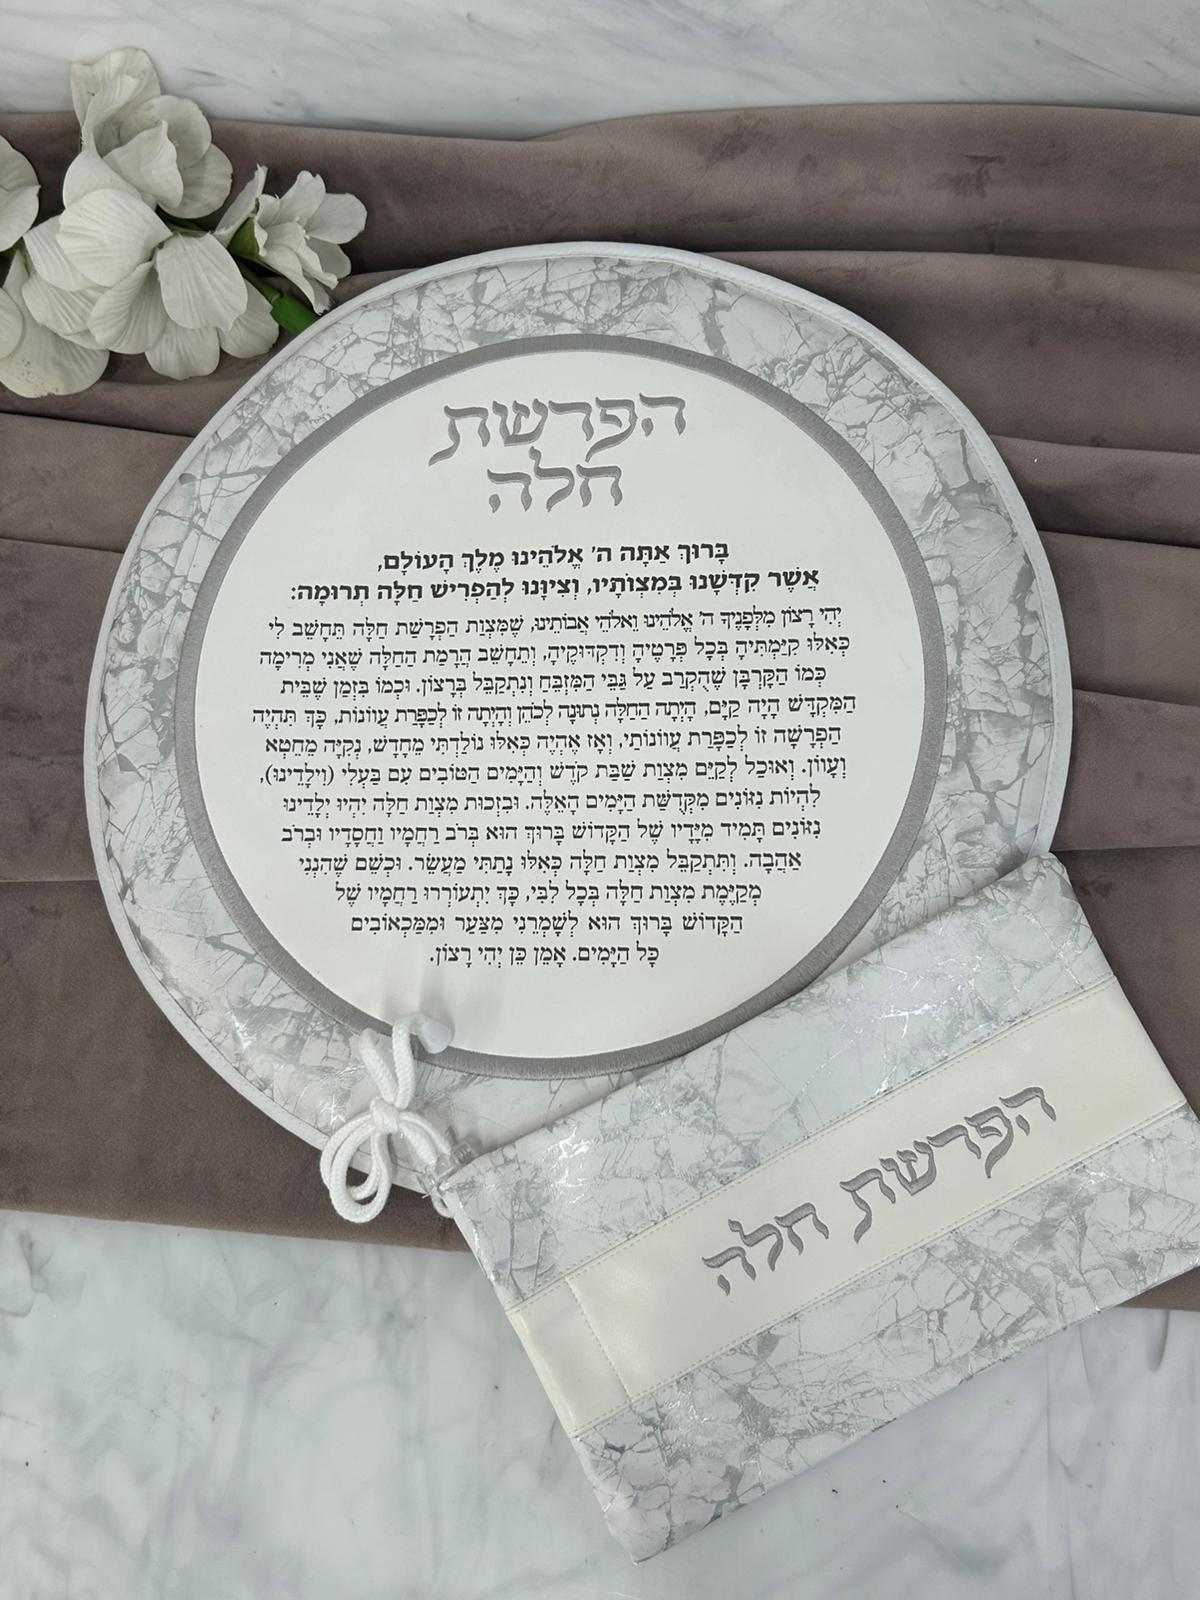 הפרשת
חלה
בָּרוּךְ אַתָּה ה' אֱלֹהֵינוּ מֶלֶךְ הָעוֹלָם,
אֲשֶׁר קִדְּשָׁנוּ בְּמִצְוֹתָיו, וְצִיוָּנוּ לְהַפְרִישׁ חַלָּה תְּרוּמָה:
יְהִי רָצוֹן מִלְּפָנֶיךָ ה' אֱלֹהֵינוּ וֵאלֹהֵי אֲבוֹתֵינוּ, שֶׁמִּצְוַת הַפְרָשַׁת חַלָּה תֵּחָשֵׁב לִי
כְּאִלּוּ קִיַּמְתִּיהָ בְּכָל פְּרָטֶיהָ וְדִקְדּוּקֶיהָ, וְתֵחָשֵׁב הֲרָמַת הַחַלָּה שֶׁאֲנִי מְרִימָה
כְּמוֹ הַקָּרְבָּן שֶׁהֻקְרַב עַל גַּבֵּי הַמִּזְבֵּחַ וְנִתְקַבֵּל בְּרָצוֹן. וּכְמוֹ בִּזְמַן שֶׁבֵּית
הַמִּקְדָּשׁ הָיָה קַיָּם, הָיְתָה הַחַלָּה נְתוּנָה לַכֹּהֵן וְהָיְתָה זוֹ לְכַפָּרַת עֲווֹנוֹת, כָּךְ תִּהְיֶה
הַפְרָשָׁה זוֹ לְכַפָּרַת עֲווֹנוֹתַי, וְאָז אֶהְיֶה כְּאִלּוּ נוֹלַדְתִּי מֵחָדָשׁ, נְקִיָּה מֵחֵטְא
וְעָווֹן. וְאוּכַל לְקַיֵּם מִצְוַת שַׁבַּת קֹדֶשׁ וְהַיָּמִים הַטּוֹבִים עִם בַּעְלִי (וִילָדֵינוּ),
לִהְיוֹת נִזּוֹנִים מִקְּדֻשַּׁת הַיָּמִים הָאֵלֶּה. וּבִזְכוּת מִצְוַת חַלָּה יִהְיוּ יְלָדֵינוּ
נִזּוֹנִים תָּמִיד מִיָּדָיו שֶׁל הַקָּדוֹשׁ בָּרוּךְ הוּא בְּרֹב רַחֲמָיו וַחֲסָדָיו וּבְרֹב
אַהֲבָה. וְתִתְקַבֵּל מִצְוַת חַלָּה כְּאִלּוּ נָתַתִּי מַעֲשֵׂר. וּכְשֵׁם שֶׁהִנְנִי
מְקַיֶּמֶת מִצְוַת חַלָּה בְּכָל לִבִּי, כָּךְ יִתְעוֹרְרוּ רַחֲמָיו שֶׁל
הַקָּדוֹשׁ בָּרוּךְ הוּא לְשָׁמְרֵנִי מִצַּעַר וּמִמַּכְאוֹבִים
כָּל הַיָּמִים. אָמֵן כֵּן יְהִי רָצוֹן.
הפרשת חלה